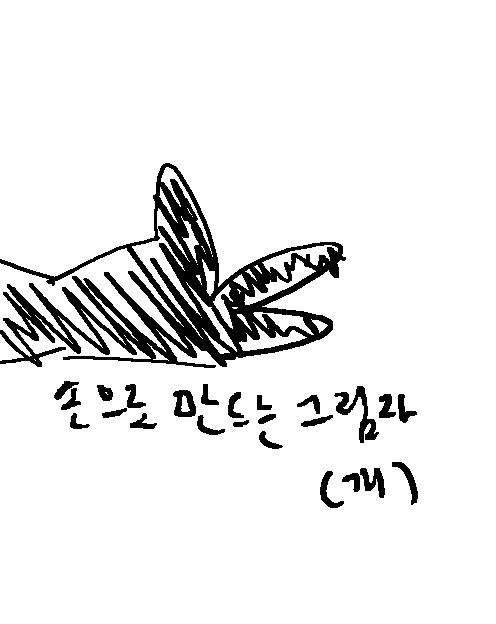 손으로 만드는 그림자
(개)